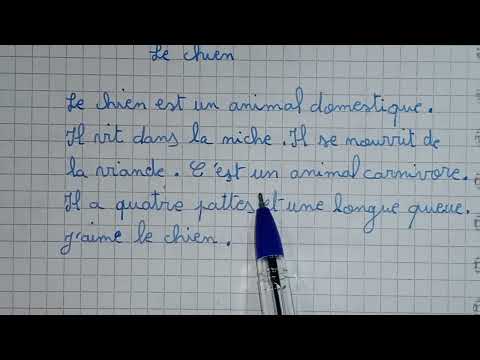 Le chien
Le chien est un animal domestique.
Il vit dans la niche. Il se nourrit de
la viande. C'est un animal carnivore.
Il a quatre pattes et une longue queue.
J'aime le chien.